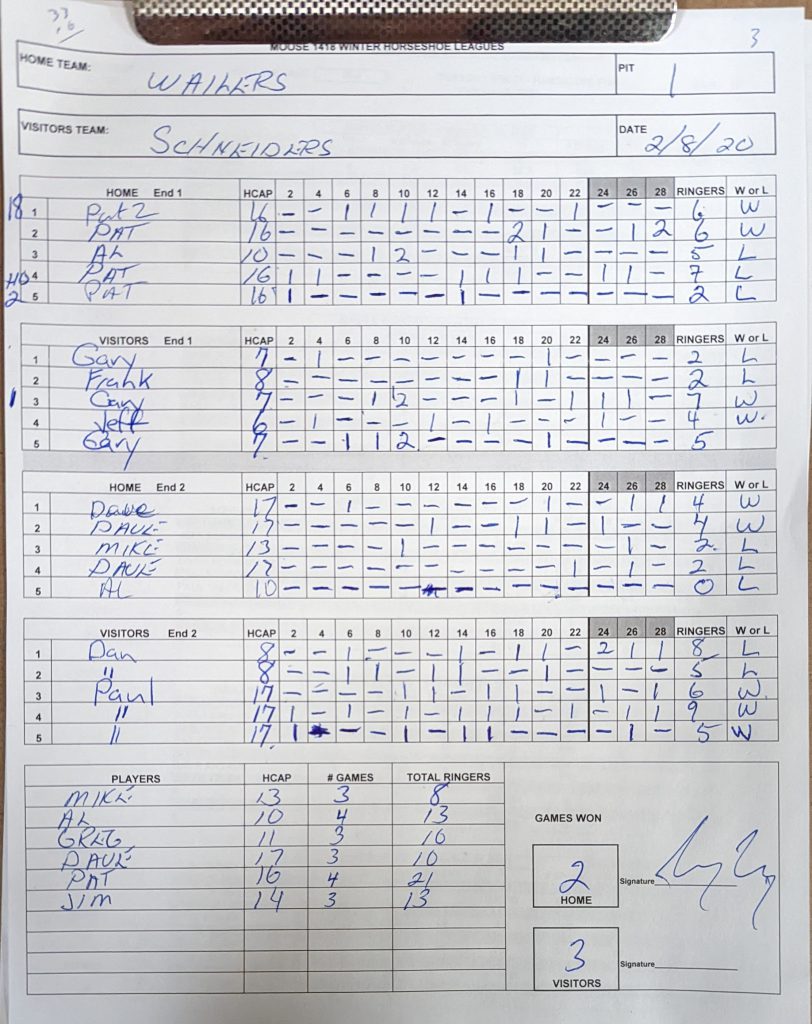 33
3
MOOSE 1418 WINTER HORSESHOE LEAGUES
HOME TEAM: WAILERS PIT 1
VISITORS TEAM: SCHNEIDERS DATE 2/8/20
HOME End 1 HCAP 2 4 6 8 10 12 14 16 18 20 22 24 26 28 RINGERS W or L
18 1 Pat 2 16 – – 1 1 1 1 – 1 – – 1 – – – 6 W
2 PAT 16 – – – – – – – – 2 1 – – 1 2 6 W
3 AL 10 – – – 1 2 – – – 1 1 – – – – 5 L
40 4 PAT 16 1 1 – – – – 1 1 1 – – 1 1 – 7 L
2 5 PAT 16 1 – – – – – 1 – – – – – – – 2 L
VISITORS End 1 HCAP 2 4 6 8 10 12 14 16 18 20 22 24 26 28 RINGERS W or L
1 Gary 7 – 1 – – – – – – – 1 – – – – 2 L
2 Frank 8 – – – – – – – – 1 1 – – – – 2 L
1 3 Gary 7 – – – 1 2 – – – 1 – 1 1 1 – 7 W
4 Jeff 6 – 1 – – – 1 – 1 – – – 1 – – 4 W.
5 Gary 7 – – 1 1 2 – – – – 1 – – – – 5
HOME End 2 HCAP 2 4 6 8 10 12 14 16 18 20 22 24 26 28 RINGERS W or L
1 Dave 17 – – 1 – – – – – – 1 – – 1 1 4 W
2 DAVE 17 – – – – – 1 – – 1 1 – 1 – – 4 W
3 MIKE 13 – – – – 1 – – – – – – – 1 – 2 L
4 DAVE 17 – – – – – – – – – – 1 – 1 – 2 L
5 AL 10 – – – – – – – – – – – – – 0 L
VISITORS End 2 HCAP 2 4 6 8 10 12 14 16 18 20 22 24 26 28 RINGERS W or L
1 Dan 8 – – 1 – – – 1 – 1 1 – 2 1 1 8 L
2 " 8 – – 1 1 – 1 1 – 1 – – – – – 5 L
3 Paul 17 – – – – 1 1 – 1 – 1 – 1 – 1 6 W.
4 " 17 1 – 1 – 1 – 1 1 1 – 1 – 1 1 9 W
5 " 17 1 – – 1 – 1 1 – – – – 1 – 5 W
PLAYERS HCAP # GAMES TOTAL RINGERS
MIKE 13 3 8
AL 10 4 13
GREG 11 3 10
DAVE 17 3 10
PAT 16 4 21
JIM 14 3 13
GAMES WON
2 Signature
HOME
3 Signature
VISITORS